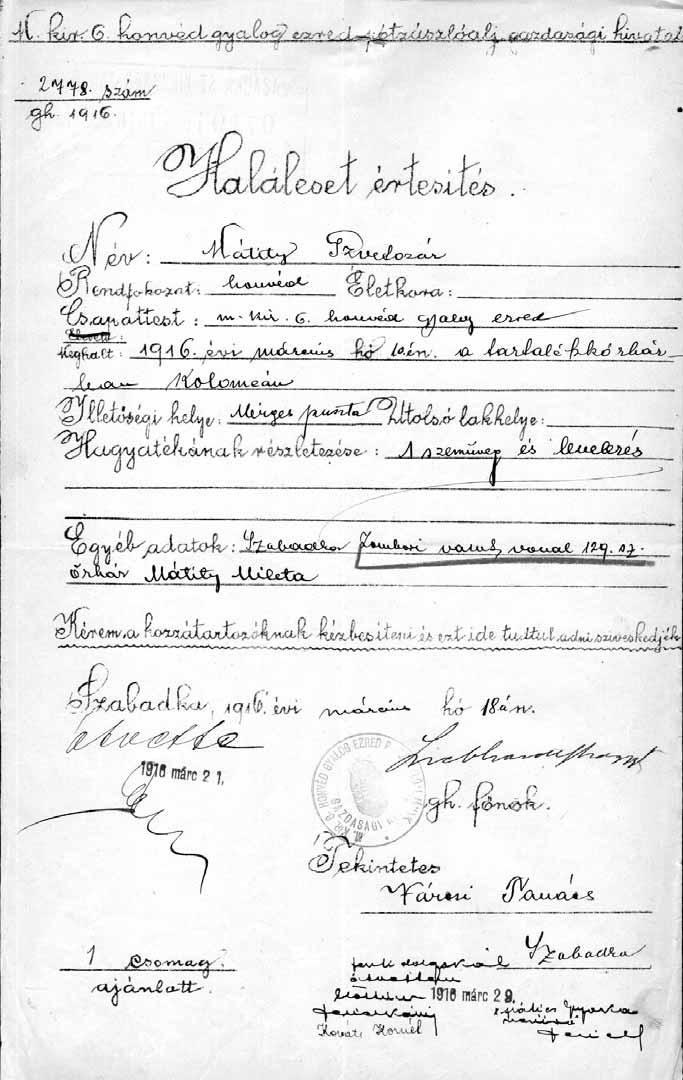 M. kir. 6. honvéd gyalog ezred pótzászlóalj gazdasági hivatal
2778. szám
gh. 1916.
Haláleset értesítés.
Név: Mátity Tzvedozár
Rendfokozat: honvéd Életkora:
Csapattest: m. kir. 6. honvéd gyalog ezred
Meghalt: 1916. évi március hó 10.én. a tartalékkórház-
ban Kolomeán
Illetőségi helye: Mérges puszta Utolsó lakhelye:
Hagyatékának részletezése: 1 szemüveg és levelezés
Egyéb adatok: Szabadka Zombori vasut vonal 129. sz.
őrház Mátity Mileta
Kérem a hozzátartozóknak kézbesíteni és ezt ide tudtul adni sziveskedjék
Szabadka, 1916. évi március hó 18án.
átvette
1916 márc 21.
M. KIR. 6. HONVÉD GYALOG EZRED
GAZDASÁGI
gh. főnök.
Tekintetes
Városi Tanács
Szabadka
1 csomag.
ajánlott.
fenti dolgokat
átvettem
1916 márc 29.
Kovács Kornél